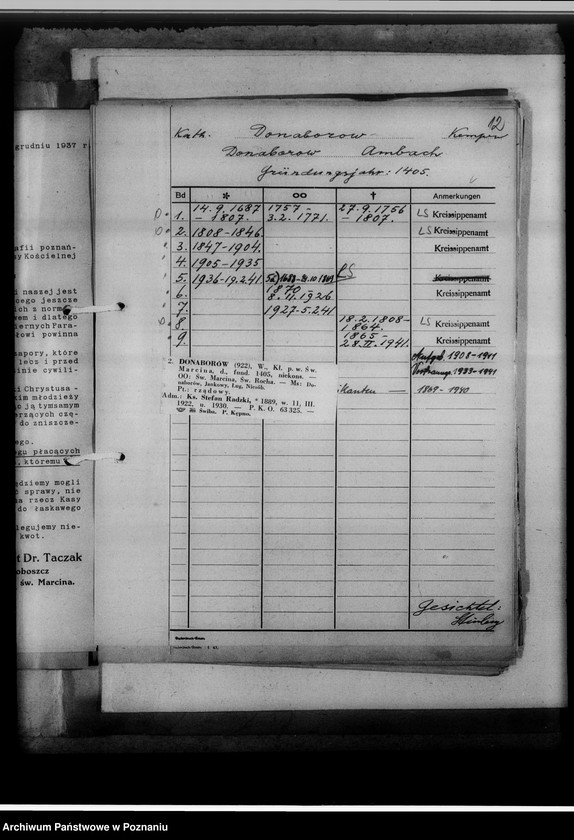 grudniu 1937 r
afii poznań-
y Kościelnej
i naszej jest
cego jeszcze
ich z norma
em i dlatego
iernych Para-
łowi powinna
apory, które
leśc i przed
inie cywili-
i Chrystusa -
kim młodzieży
ąc ją tymsamym
erzących czę-
do zniszcze-
ego.
gu płacących
, któremu
ędziemy mogli
o sprawy, nie
a rzecz Kasy
do łaskawego
legujemy nie-
kwot.
t Dr. Taczak
oboszcz
św. Marcina.
12
Kath. Donaborow Kempen
Donaborow Ambach
Gründungsjahr: 1405.
Bd * ∞ † Anmerkungen
D. 1. 14.9.1687 – 1807. 1757 – 3.2.1771. 27.9.1756 – 1807. LS Kreissippenamt
D. 2. 1808-1846. LS Kreissippenamt
3. 1847-1904. Kreissippenamt
4. 1905-1935
5. 1936-19.2.41. LS Kreissippenamt
6. 1870 8.II.1926 Kreissippenamt
7. 1927-5.2.41.
D. 8. 18.2.1808- 1864. LS Kreissippenamt
9. 1865 – 28.II.1941. Kreissippenamt
1908-1941
1933-1941
ikanten — 1869-1940
2. DONABORÓW (922), W., Kl. p. w. Św.
Marcina, d., fund. 1405, niekons. —
OO: Św. Marcina, Św. Rocha. — Ms: Do-
naborów, Jankowy, Lag, Niesób.
Pt.: rządowy.
Adm.: Ks. Stefan Radzki, * 1889, w. 11, III.
1922, u. 1930. — P. K. O. 63 325. —
Świba. P. Kępno.
Gesichtet:
Archiwum Państwowe w Poznaniu